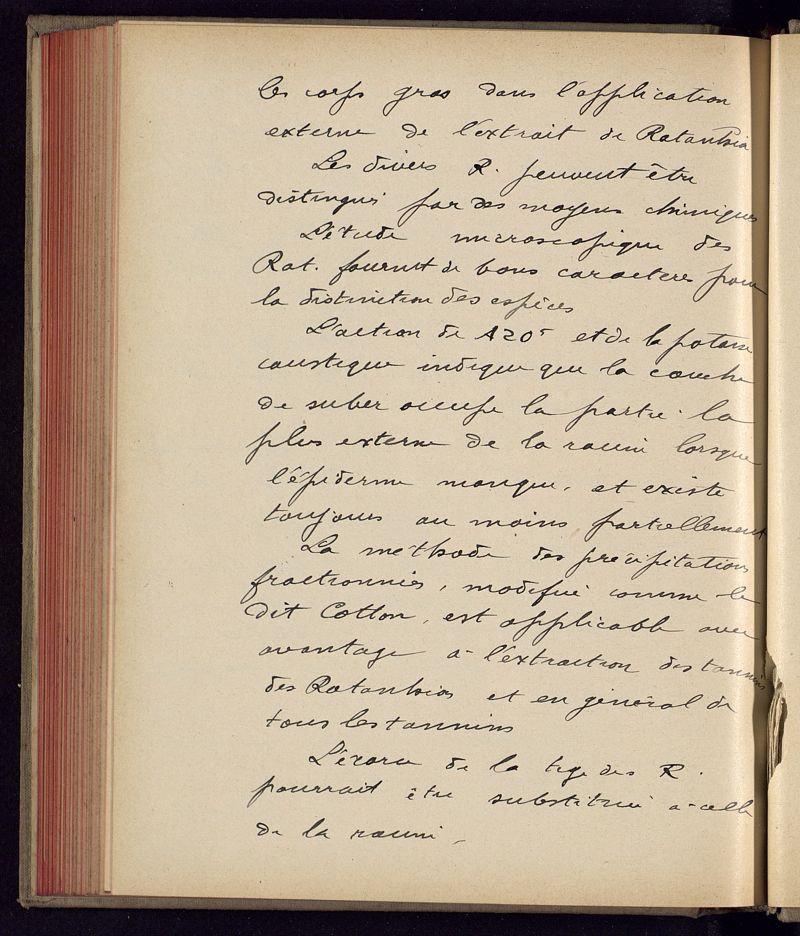 les corps gras dans l'application
externe de l'extrait de Ratanhia
Les divers R. peuvent être
distingués par des moyens chimiques
L'étude microscopique des
Rat. fournit de bons caracteres pour
la distinction des espèces
L'action de AzO⁵ et de la potasse
caustique indique que la couche
de suber occupe la partie la
plus externe de la racine lorsque
l'épiderme manque, et existe
toujours au moins partiellement
La méthode des précipitations
fractionnées, modifiée comme le
dit Cotton, est applicable avec
avantage a l'extraction des tannins
des Ratanhias et en général de
tous les tannins
L'écorce de la tige des R.
pourrait être substituée a celle
de la racine.